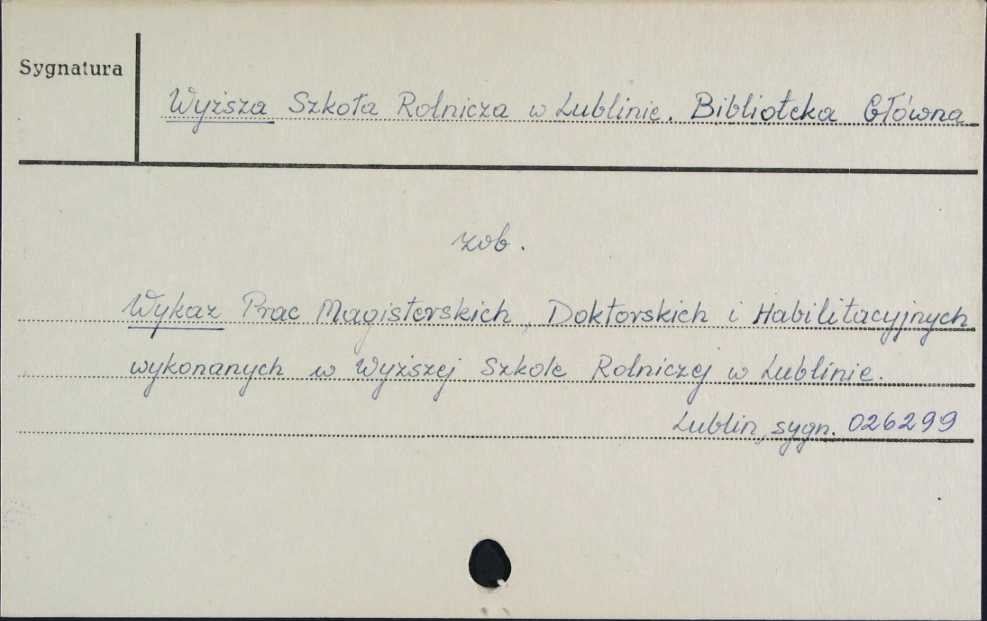 Sygnatura
Wyższa Szkoła Rolnicza w Lublinie. Biblioteka Główna
zob.
Wykaz Prac Magisterskich, Doktorskich i Habilitacyjnych
wykonanych w Wyższej Szkole Rolniczej w Lublinie.
Lublin, sygn. 026299